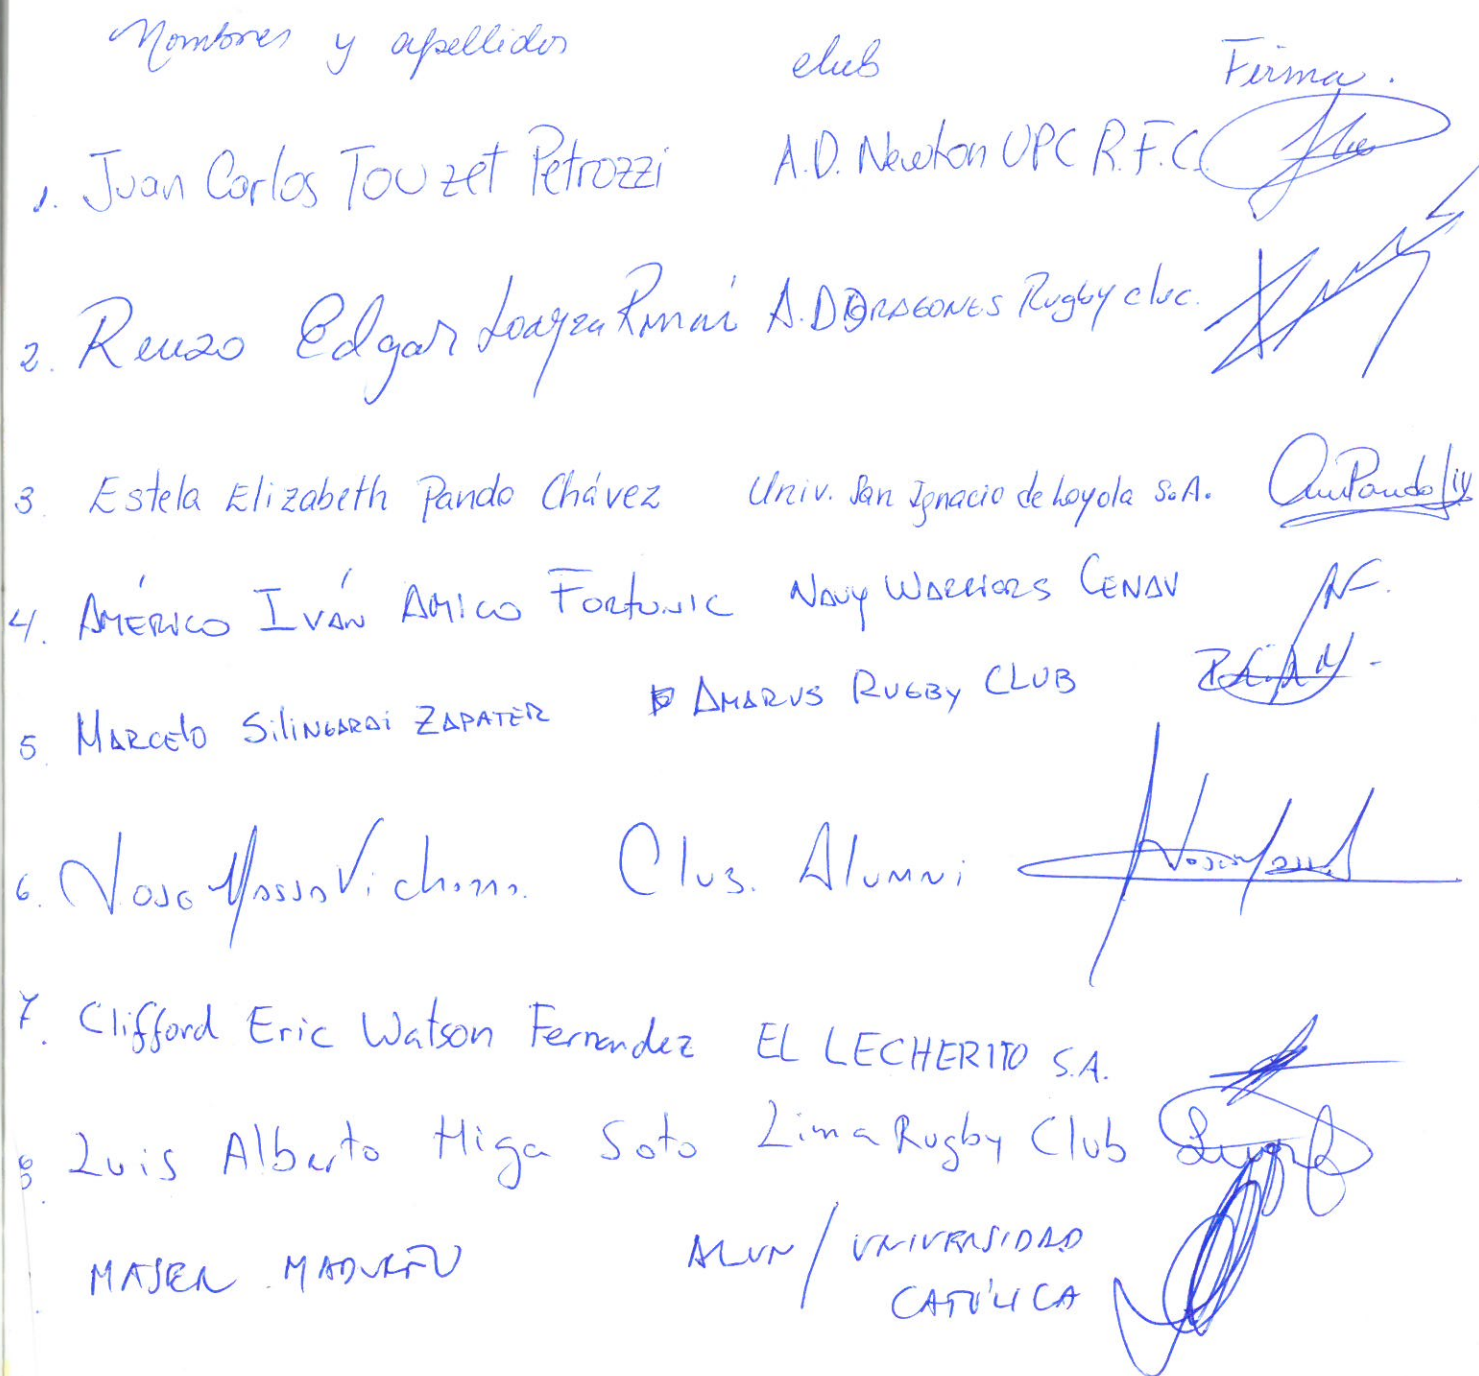 Nombres y apellidos club Firma.
1. Juan Carlos Touzet Petrozzi A.D. Newton UPC R.F.C.
2. Renzo Edgar Loayza A.D DRAGONES Rugby club.
3. Estela Elizabeth Pando Chávez Univ. San Ignacio de Loyola S.A.
4. AMÉRICO IVÁN AMICO FORTUNIC NAVY WARRIORS CENAV
5. MARCELO SILINGARDI ZAPATER AMARUS RUGBY CLUB
6. Club. Alumni
7. Clifford Eric Watson Fernandez EL LECHERITO S.A.
8. Luis Alberto Higa Soto Lima Rugby Club
ALUM / UNIVERSIDAD
CATÓLICA